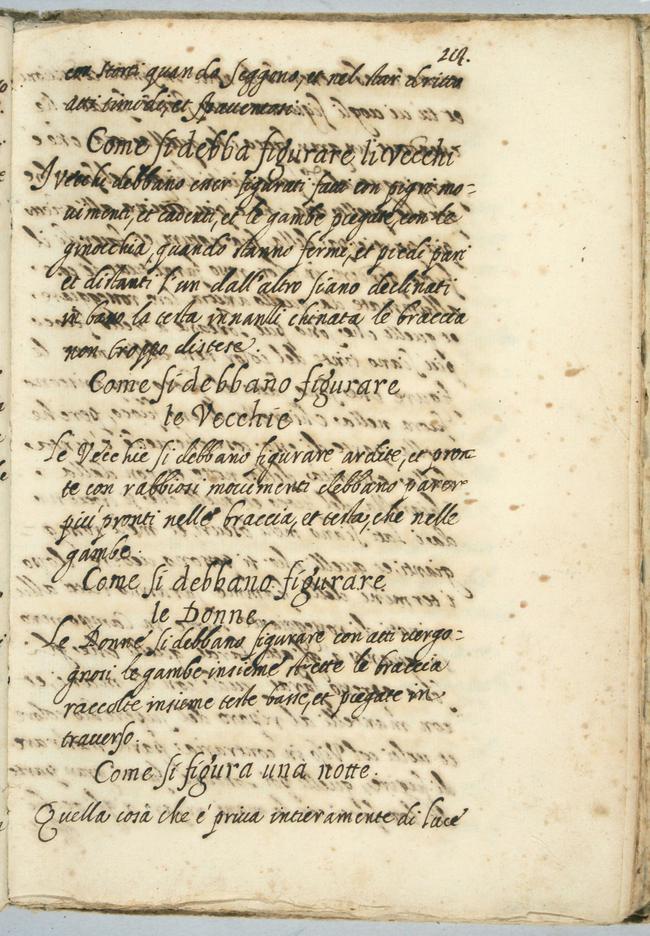 219.
con storti quando seggono, et nel star dritto
atti timidi, et spauentati.
Come si debba figurare li vecchi
I vecchi debbano esser figurati fatti con pigri mo=
uimenti, et cadenti, et le gambe piegate, con le
ginocchia, quando stanno fermi, et piedi pari
et distanti l'un dall'altro siano declinati
in basso la testa innanzi chinata le braccia
non troppo distese.
Come si debbano figurare
le Vecchie
Le Vecchie si debbano figurare ardite, et pron
te con rabbiosi mouimenti debbano parer
piu pronti nelle braccia, et testa, che nelle
gambe.
Come si debbano figurare
le Donne
Le Donne si debbano figurare con atti uergo=
gnosi le gambe insieme strette le braccia
raccolte insieme teste basse, et piegate in
trauerso.
Come si figura una notte.
Quella cosa che é priua intieramente di luce